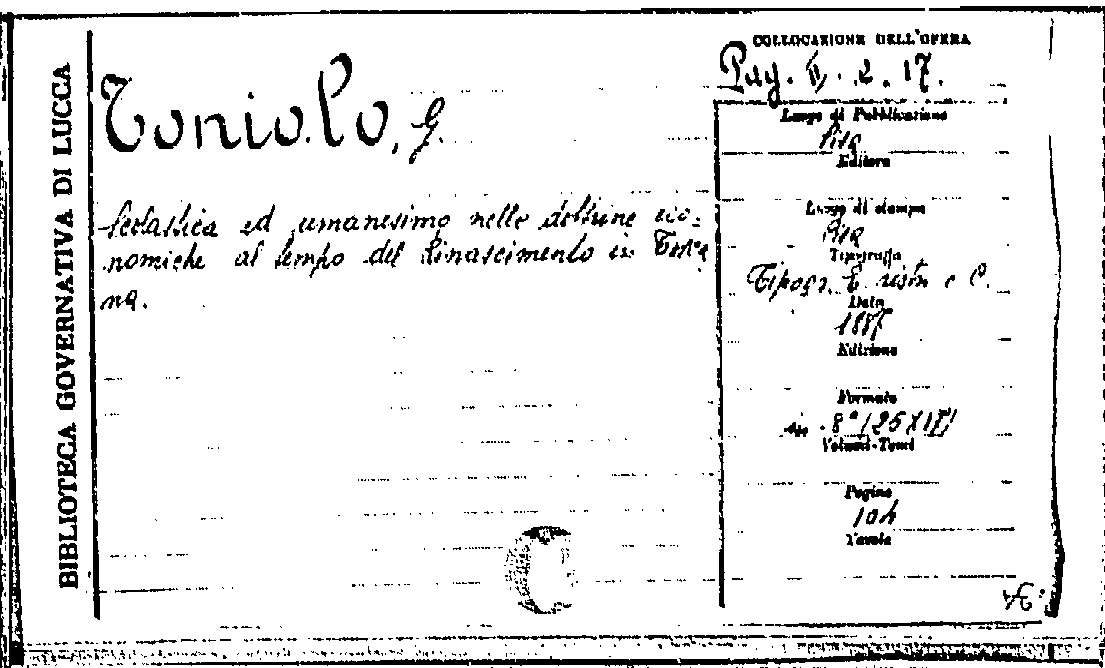 BIBLIOTECA GOVERNATIVA DI LUCCA
Toniolo, G.
Scolastica ed umanesimo nelle dottrine eco-
nomiche al tempo del Rinascimento in Tosca
na.
COLLOCAZIONE DELL'OPERA
II. 2. 17.
Luogo di Pubblicazione
Pisa
Editore
Luogo di stampa
Pisa
Tipografia
Tipogr. e C.
Data
Edizione
Formato
in 8°
Volumi-Tomi
Pagine
Tavole